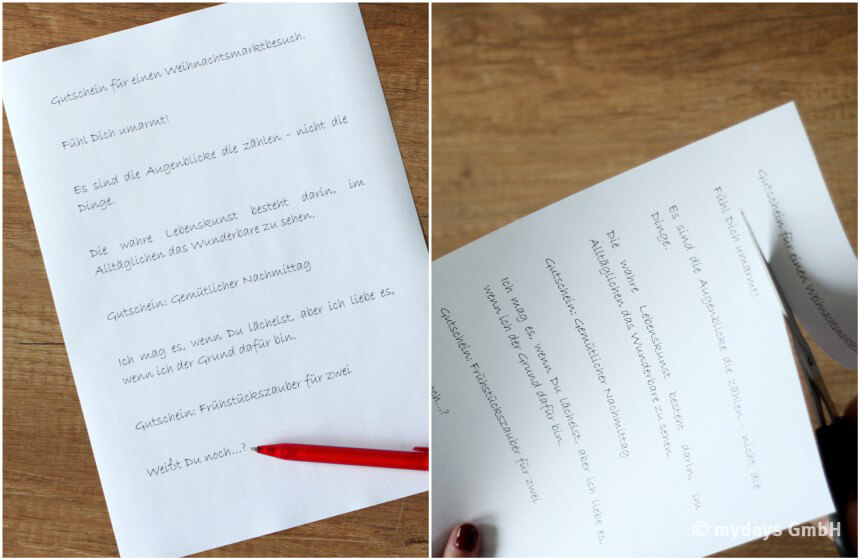 Gutschein für einen Weihnachtsmarktbesuch.
Fühl Dich umarmt!
Es sind die Augenblicke die zählen - nicht die
Dinge.
Die wahre Lebenskunst besteht darin, im
Alltäglichen das Wunderbare zu sehen.
Gutschein: Gemütlicher Nachmittag
Ich mag es, wenn Du lächelst, aber ich liebe es,
wenn ich der Grund dafür bin.
Gutschein: Frühstückszauber für zwei
Weißt Du noch...?
Gutschein für einen Weihnachtsmarktbe
Fühl Dich umarmt!
Es sind die Augenblicke die zählen - nicht die
Dinge.
Die wahre Lebenskunst besteht darin, im
Alltäglichen das Wunderbare zu sehen.
Gutschein: Gemütlicher Nachmittag
Ich mag es, wenn Du lächelst, aber ich liebe es,
wenn ich der Grund dafür bin.
Gutschein: Frühstückszauber für zwei
noch...?
© mydays GmbH